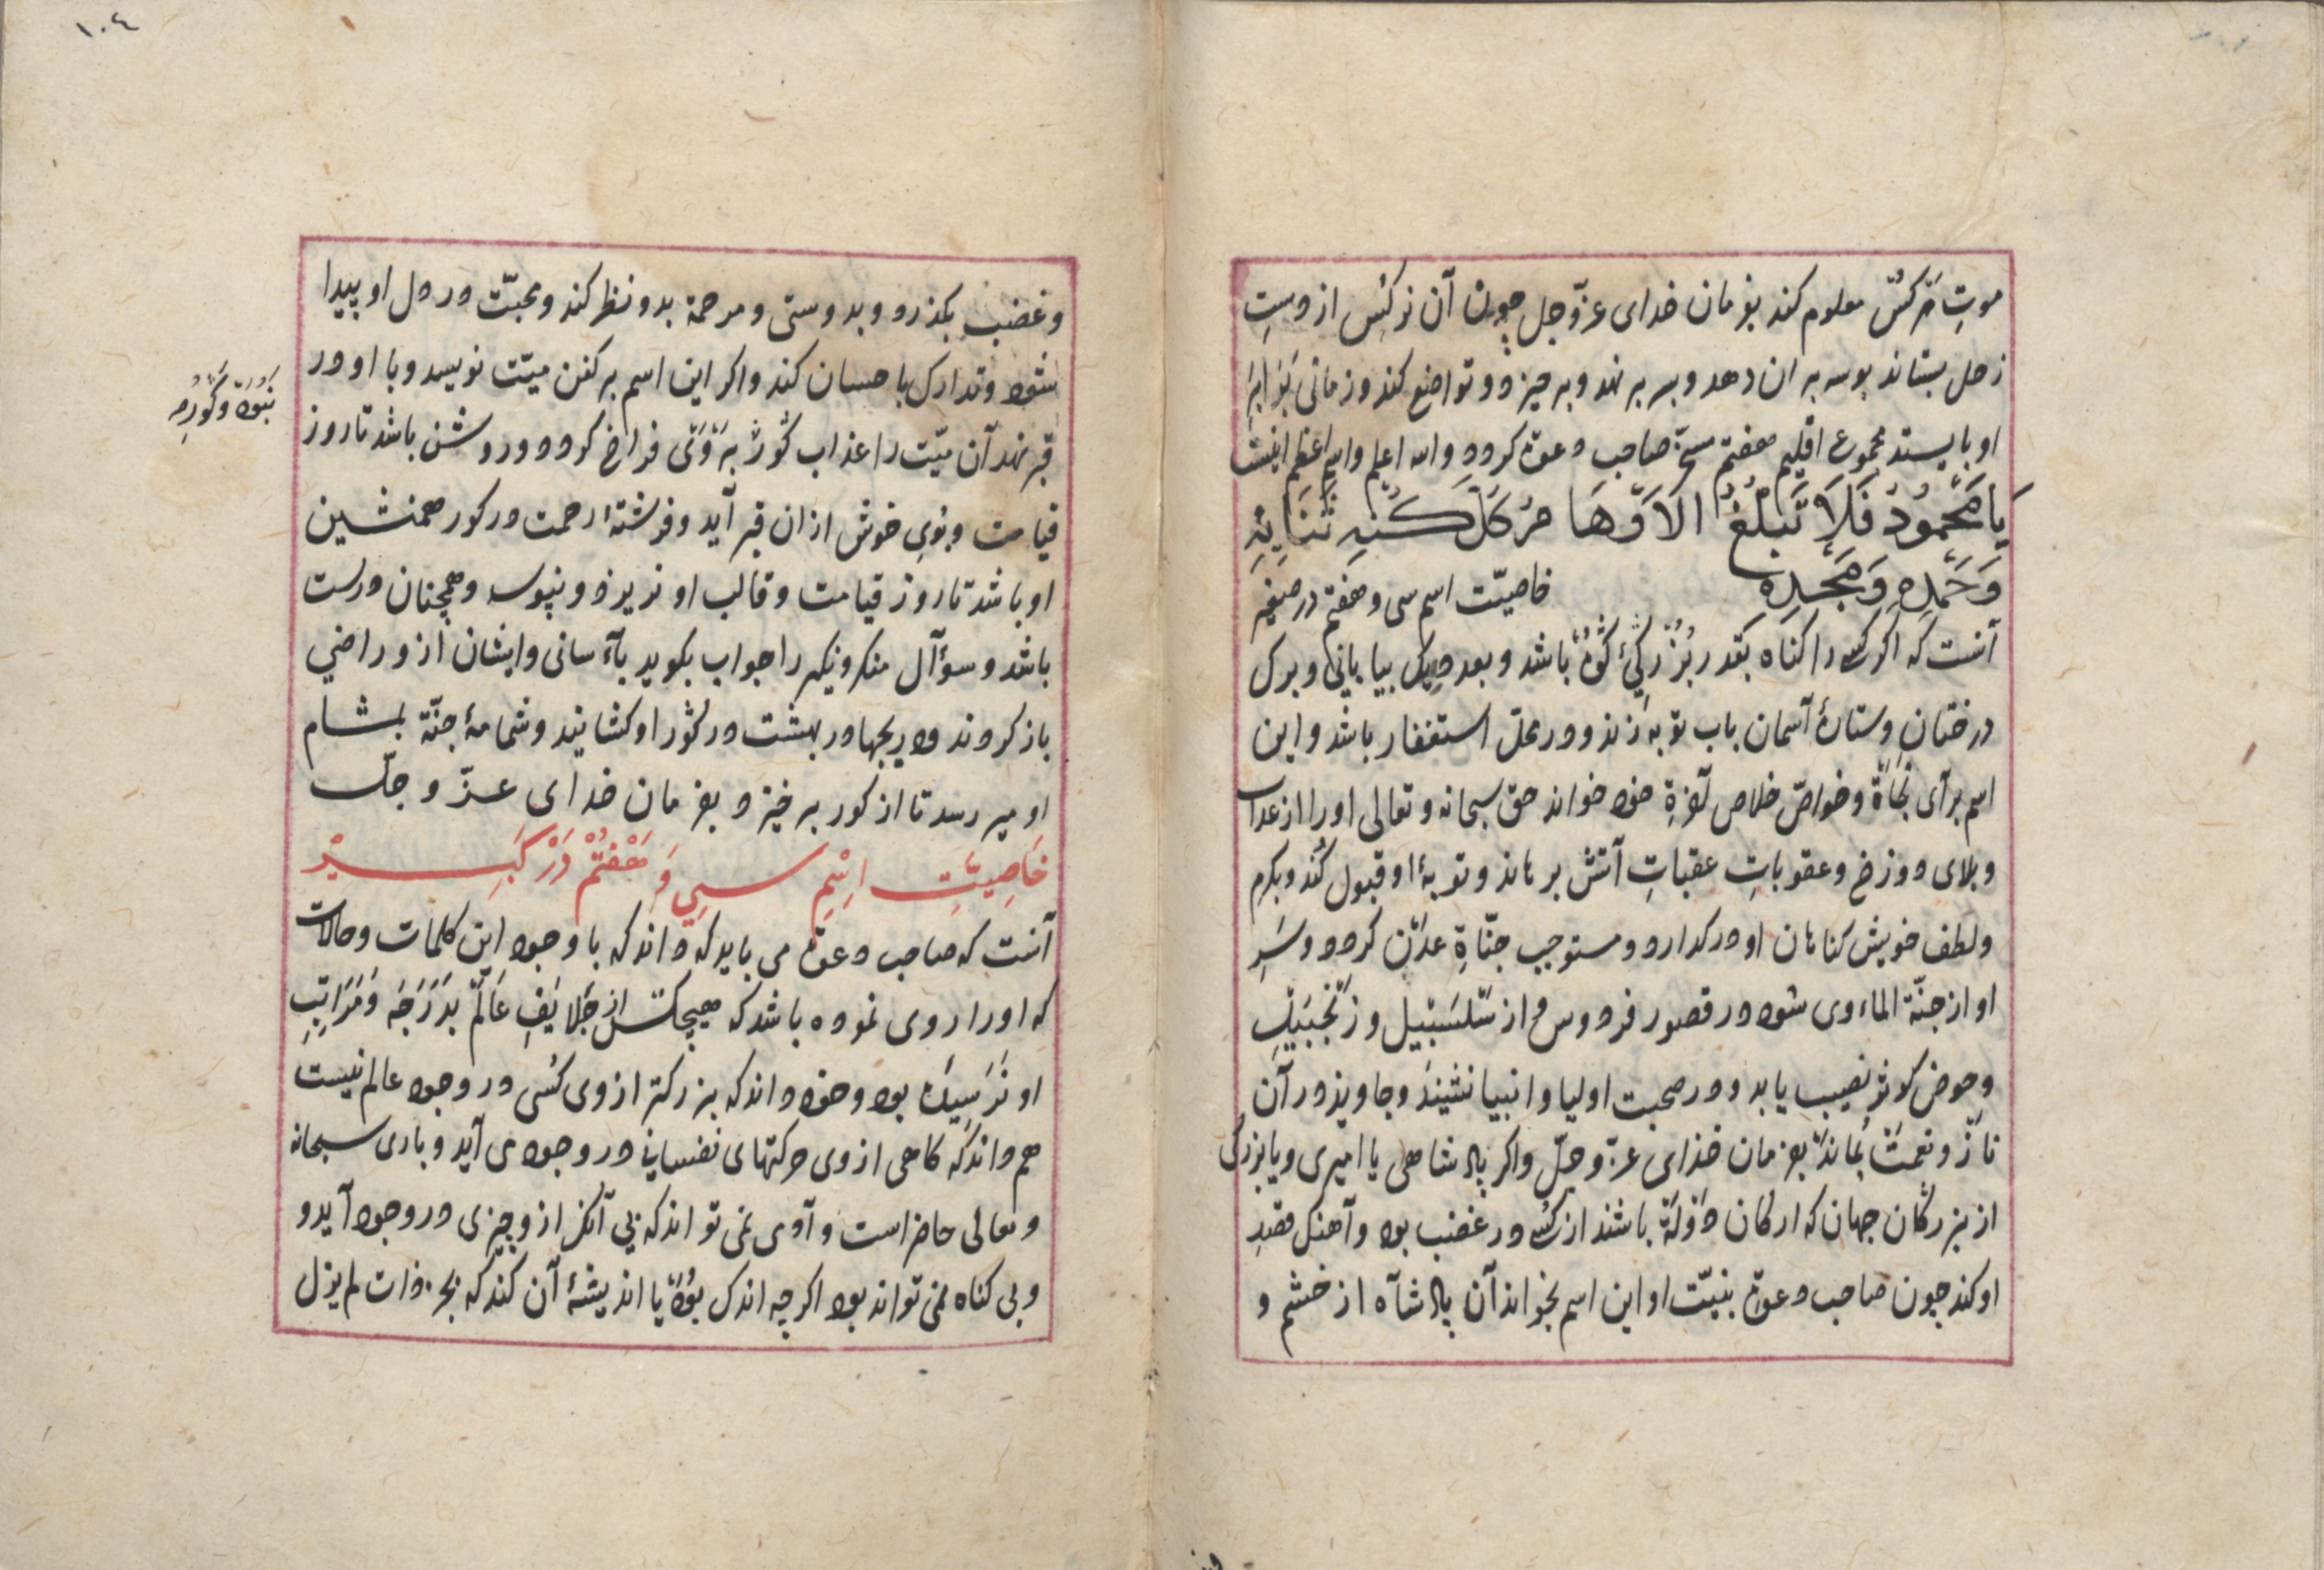 موتِ هر کس معلوم کند بفرمان خدای عزّ و جل چون آن نرکس از دستِ
زحل بستاند بوسه بر ان دهد و بسر بر نهد و برخیزد و تواضع کند و زمانی برابر
او بایستد مجموع اقلیم هفتم مسخّر صاحب دعوة کردد والله اعلم واسم اعظم اینست
یَا مَحْمُودُ فَلَا تَبْلُغُ الْاَوْهَامُ كُلَّ كُنْهِ ثَنَایِهِ
وَحَمْدِهِ وَمَجْدِهِ خاصیّت اسم سی و هفتم در صغیر
آنست که اکر کسی را کناه بقدر بزرکیٔ کوه باشد و بعدد ریک بیابانی و برک
درختان و ستارهٔ آسمان باب توبه زند و در محلّ استغفار باشد و این
اسم برآی نجاة و خواصّ خلاص آخرة خود خواند حق سبحانه و تعالی او را از عذاب
و بلای دوزخ و عقوباتِ عقباتِ آتش برهاند و توبهٔ او قبول کند و بکرم
و لطف خویش کناهان او در کدارد و مستوجب جنّاةِ عدن کردد و سَرِ
او از جنّة الماءوی شود در قصور فردوس و از سَلْسَبْیل و زَنْجَبَیْل
و حوض کوثر نصیب یابد و در صحبت اولیا و انبیا نشیند و جاوید در آن
نازّ و نعمت بماند بفرمان خذای عزّ و جلّ و اکر پادشاهی یا امیری و یا بزرکی
از بزرکان جهان که ارکان دَوْلَة باشند از کسی در غضب بود و آهنک قصدِ
او کند چون صاحب دعوة بنیّت او این اسم بخواند آن پادشآه از خشم و
١٠٤
و غضب بکذرد و بدوستی و مرحمة بدو نظر کند و محبّت در دل او پیدا
شود و تدارک باحسان کند و اکر این اسم بر کفن میّت نویسد و با او در
قبر نهد آن میّت را عذاب کور فراخ کردد و روشن باشد تا روز
قیامت و بوی خوش از ان قبر آید و فرشتهٔ رحمت در کور همنشین
او باشد تا روز قیامت و قالب او نریزد و نپوسد و همچنان درست
باشد و سؤآل منکر و نیکر را جواب بکوید بآسانی و ایشان از و راضی
باز کردند و دریچها در بهشت در کور او کشایند و شمامهٔ جنّة بمشام
او میرسد تا از کور برخیزد بفرمان خدای عزّ و جلّ
خَاصِیَّتِ اِسْمِ سِی وَ هَفْتُمْ دَرْ کَبِیرْ
آنست که صاحب دعوة می باید که داند که با وجود این کلمات و حالات
که او را روی نموده باشد که هیچکس از خَلَایَفِ عَالَمْ بَدَرَجَه وَ مَرَاتِبِ
او نَرَسِیدَه بود و خود داند که بزرکتر از وی کسی در وجود عالم نیست
هم داند که کاهی از وی حرکتهای نفسانی در وجود می آید و باری سبحانه
و تعالی حاضر است و آدمی نمی تواند که بی آنکز از و چیزی در وجود آید و
و بی کناه نمی تواند بود اکرچه اندک بود یا اندیشهٔ آن کند که بجز ذات لم یزل